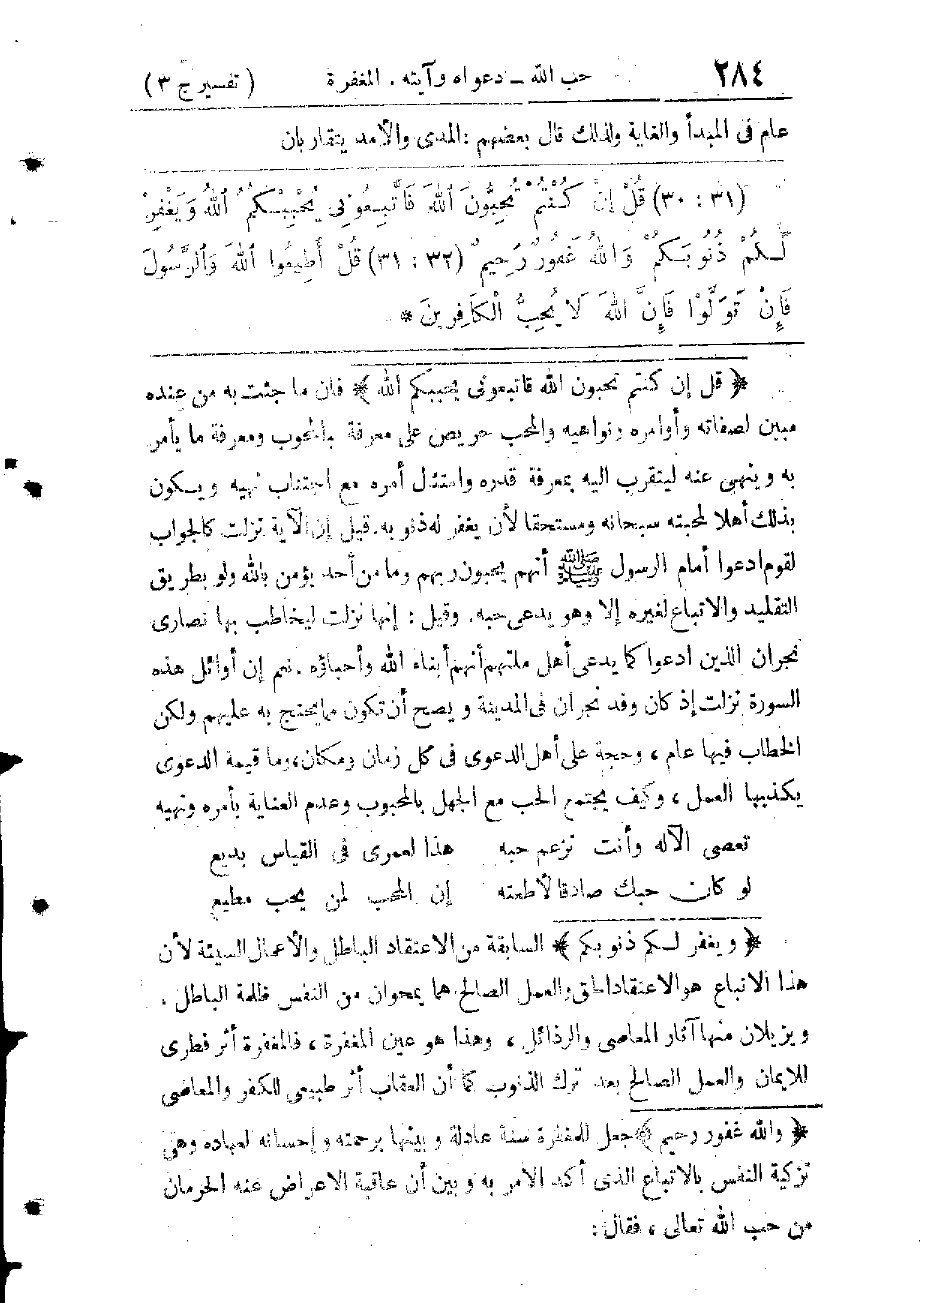 ٢٨٤ حب الله ــ دعواه وآيته . المغفرة ( تفسير ج ٣ )
عام فى المبدأ والغاية ولذلك قال بعضهم : المدى والأمد يتقاربان
(٣١ : ٣٠) قُلْ إِنْ كُنْتُمْ تُحِبُّونَ ٱللهَ فَاتَّبِعُونِي يُحْبِبْكُمُ ٱللهُ وَيَغْفِرْ
لَكُمْ ذُنُوبَكُمْ وَٱللهُ غَفُورٌ رَحِيمٌ (٣٢ : ٣١) قُلْ أَطِيعُوا ٱللهَ وَٱلرَّسُولَ
فَإِنْ تَوَلَّوْا فَإِنَّ اللهَ لَا يُحِبُّ الْكَافِرِينَ *
﴿ قل إن كنتم تحبون الله فاتبعونى يحببكم الله ﴾ فان ما جئت به من عنده
مبين لصفاته وأوامره ونواهيه والمحب حريص على معرفة بالمحبوب ومعرفة ما يأمر
به وينهى عنه ليتقرب اليه بمعرفة قدره وامتثال أمره مع اجتناب نهيه ويكون
بذلك أهلا لمحبته سبحانه ومستحقا لأن يغفر له ذنوبه. قيل إن الآية نزلت كالجواب
لقوم ادعوا أمام الرسول ﷺ أنهم يحبون ربهم وما من أحد يؤمن بالله ولو بطريق
التقليد والاتباع لغيره إلا وهو يدعى حبه. وقيل : إنها نزلت ليخاطب بها نصارى
نجران الذين ادعوا كما يدعى أهل ملتهم أنهم أبناء الله وأحباؤه . نعم إن أوائل هذه
السورة نزلت إذ كان وفد نجران فى المدينة ويصح أن تكون مما يحتج به عليهم ولكن
الخطاب فيها عام ، وحجة على أهل الدعوى فى كل زمان ومكان، وما قيمة الدعوى
يكذبها العمل ، وكيف يجتمع الحب مع الجهل بالمحبوب وعدم العناية بأمره ونهيه
تعصى الآله وأنت تزعم حبه هذا لعمرى فى القياس بديع
لو كان حبك صادقا لأطعته إن المحب لمن يحب مطيع
﴿ ويغفر لكم ذنوبكم ﴾ السابقة من الاعتقاد الباطل والأعمال السيئة لأن
هذا الاتباع هو الاعتقاد الحق والعمل الصالح هما يمحوان من النفس ظلمة الباطل .
ويزيلان منها آثار المعاصى والرذائل ، وهذا هو عين المغفرة ، فالمغفرة أثر فطرى
للايمان والعمل الصالح بعد ترك الذنوب كما أن العقاب أثر طبيعى للكفر والمعاصى
﴿ والله غفور رحيم ﴾ جعل للمغفرة سنة عادلة وبينها برحمته وإحسانه لعباده وهى
تزكية النفس بالاتباع الذى أكد الامر به وبين أن عاقبة الاعراض عنه الحرمان
من حب الله تعالى ، فقال :